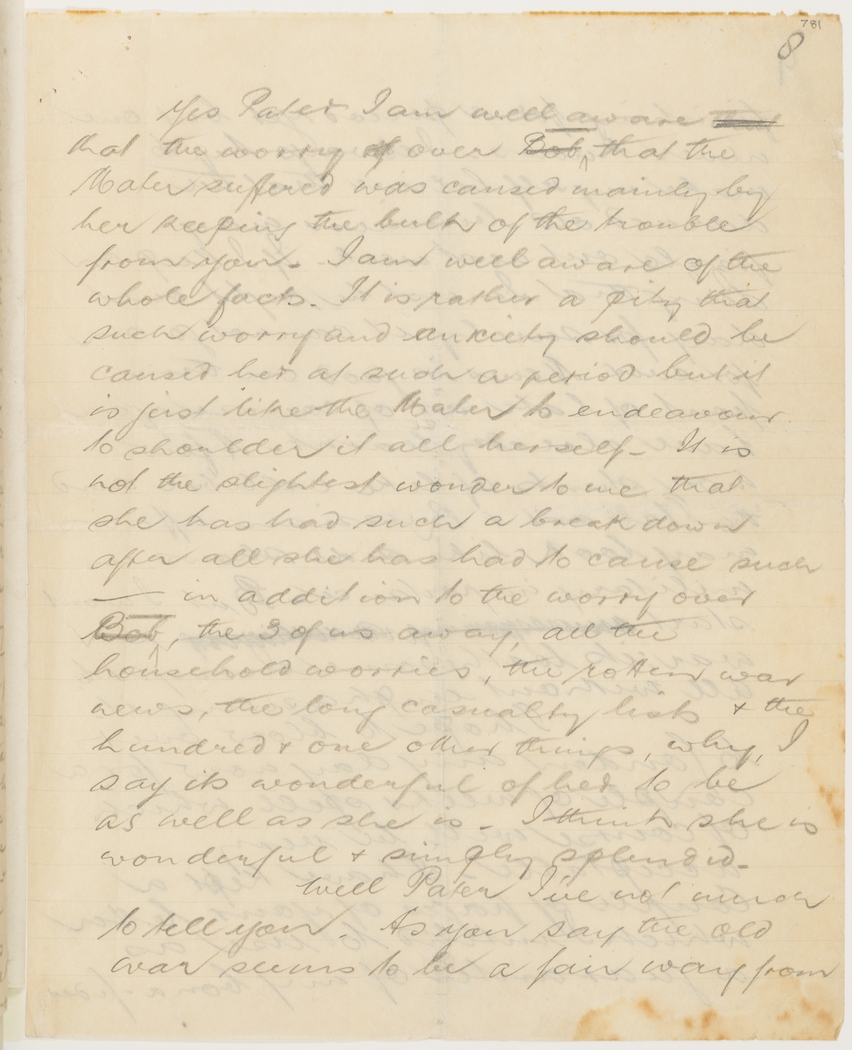 781
8
Yes Pater I am well aware
that the worry of over Bob, that the
Mater suffered was caused mainly by
her keeping the bulk of the trouble
from you. I am well aware of the
whole facts. It is rather a pity that
such worry and anxiety should be
caused her at such a period but it
is just like the Mater to endeavour
to shoulder it all herself. It is
not the slightest wonder to me that
she has had such a break down
after all she has had to cause such
— in addition to the worry over
Bob, the 3 of us away, all the
household worries, the rotten war
news, the long casualty lists & the
hundred & one other things, why, I
say its wonderful of her to be
as well as she is. I think she is
wonderful & simply splendid.
Well Pater I've not much
to tell you. As you say the old
war seems to be a fair way from